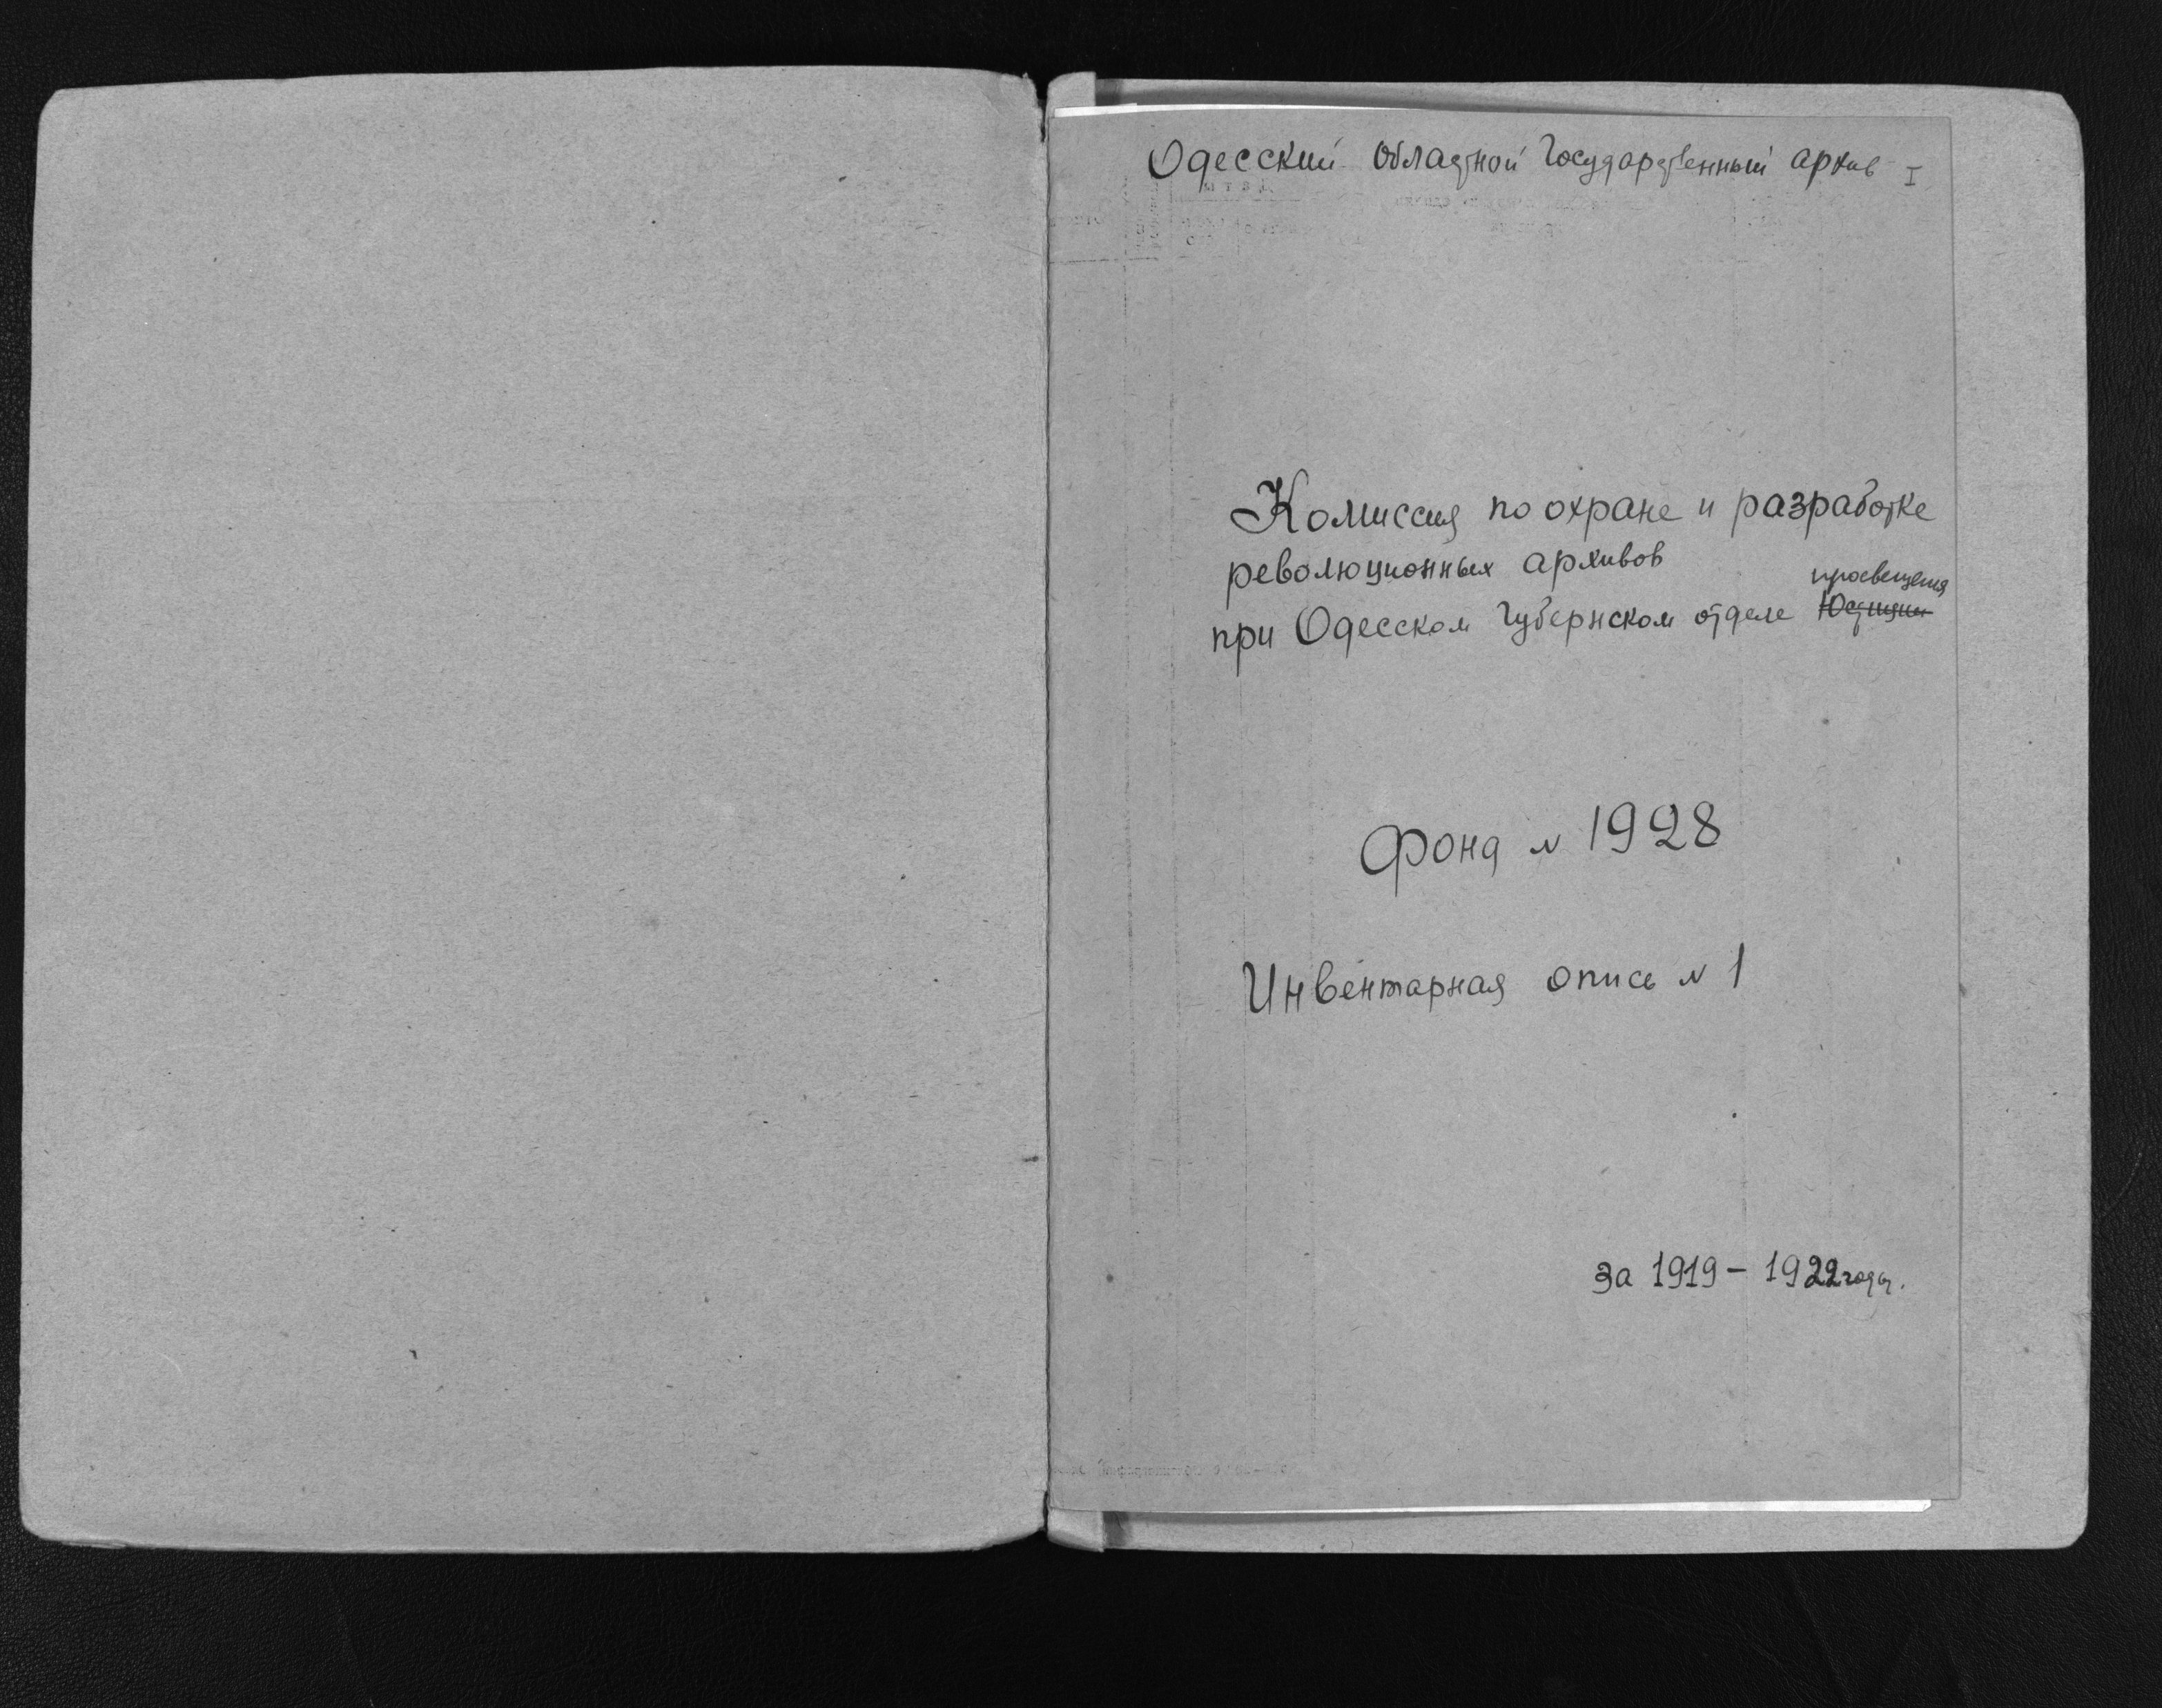 Одесский Областной Государственный архив I
Комиссия по охране и разработке
революционных архивов
просвещения
при Одесском Губернском отделе Юстиции
Фонд № 1928
Инвентарная опись № 1
за 1919 - 1922 годы.